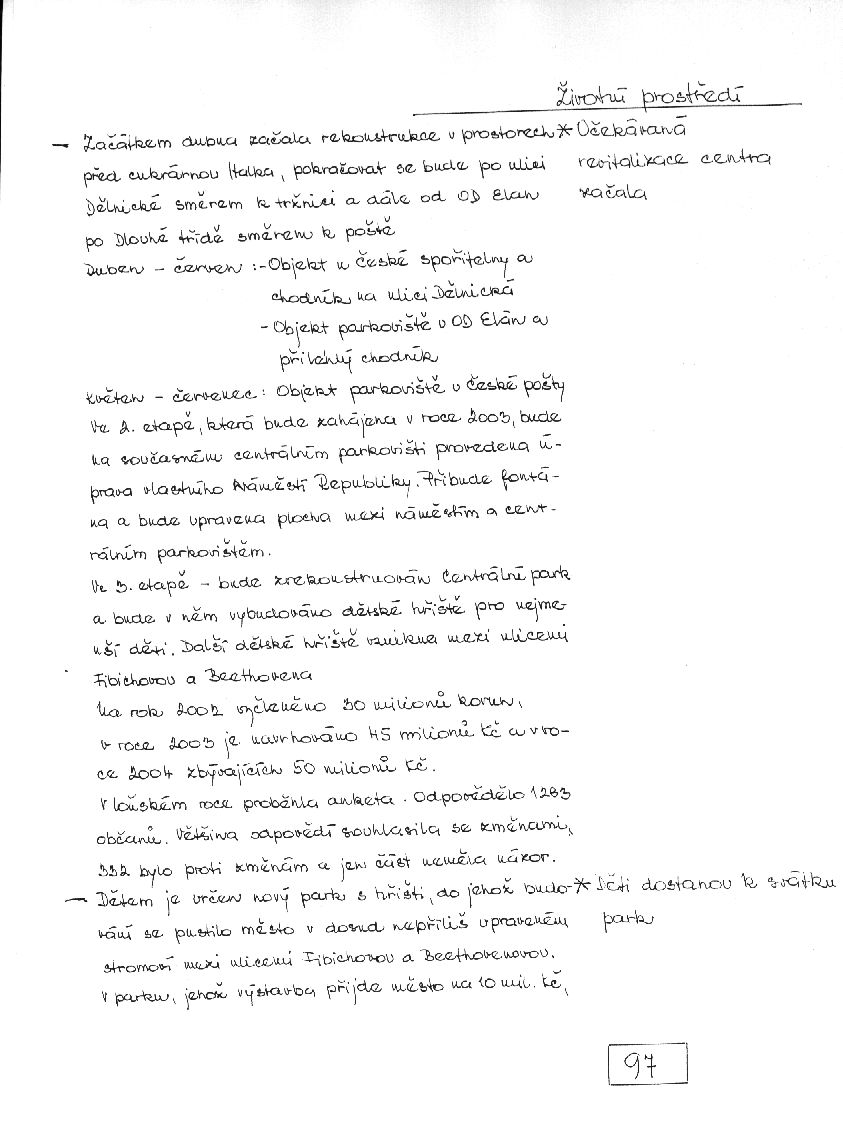 Životní prostředí
— Začátkem dubna začala rekonstrukce v prostorech * Očekávaná
před cukrárnou Italka, pokračovat se bude po ulici revitalizace centra
Dělnické směrem k tržnici a dále od OD Elan začala
po Dlouhé třídě směrem k poště
Duben – červen :- Objekt u České spořitelny a
chodník na ulici Dělnická
- Objekt parkoviště u OD Elán a
přilehlý chodník
Květen – červenec: Objekt parkoviště u České pošty
Ve 2. etapě, která bude zahájena v roce 2003, bude
na současném centrálním parkovišti provedena ú-
prava vlastního Náměstí Republiky. Přibude fontá-
na a bude upravena plocha mezi náměstím a cent-
rálním parkovištěm.
Ve 3. etapě – bude zrekonstruován Centrální park
a bude v něm vybudováno dětské hřiště pro nejme-
nší děti. Další dětské hřiště vznikne mezi ulicemi
Fibichovou a Beethovena
Na rok 2002 vyčleněno 30 milionů korun,
v roce 2003 je navrhováno 45 milionů Kč a v ro-
ce 2004 zbývajících 50 milionů Kč.
V loňském roce proběhla anketa. Odpovědělo 1283
občanů. Většina odpovědí souhlasila se změnami,
332 bylo proti změnám a jen část neměla názor.
— Dětem je určen nový park s hřišti, do jehož budo- * Děti dostanou k svátku
vání se pustilo město v dosud nepříliš upraveném park
stromoví mezi ulicemi Fibichovou a Beethovenovou.
V parku, jehož výstavba přijde město na 10 mil. Kč,
97